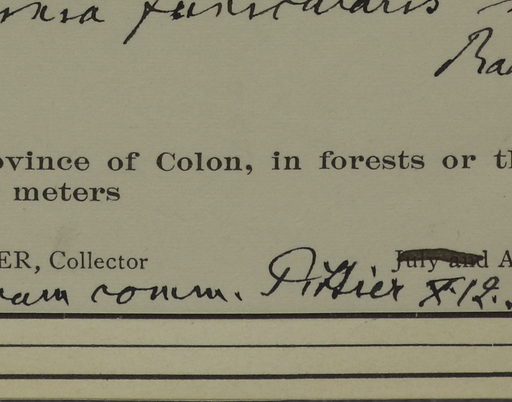 panicularis
Rad
ovince of Colon, in forests or th
meters
ER, Collector July and A
comm. Pittier X.12.